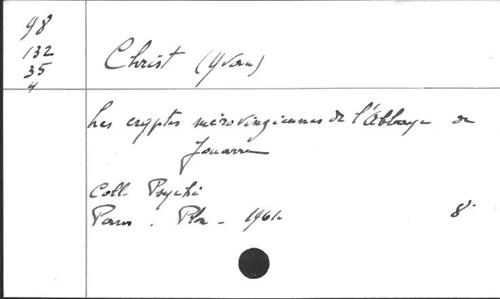 98
132
35
4
Christ (Yvan)
Les cryptes mérovingiennes de l'Abbaye de
Jouarre
Coll. Psyché
Paris. Plon - 1961 8°